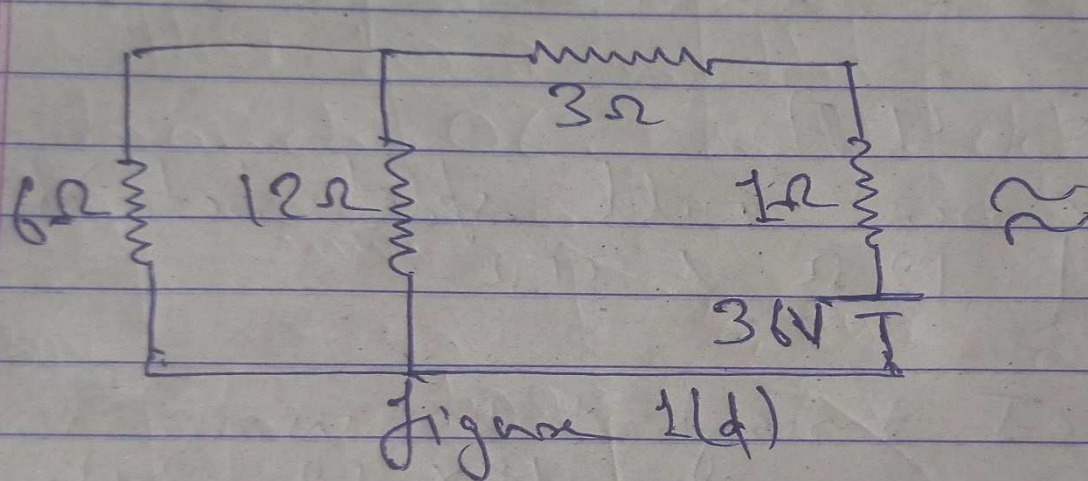 3Ω
6Ω 12Ω 1Ω ≈
36V
figure 1(d)